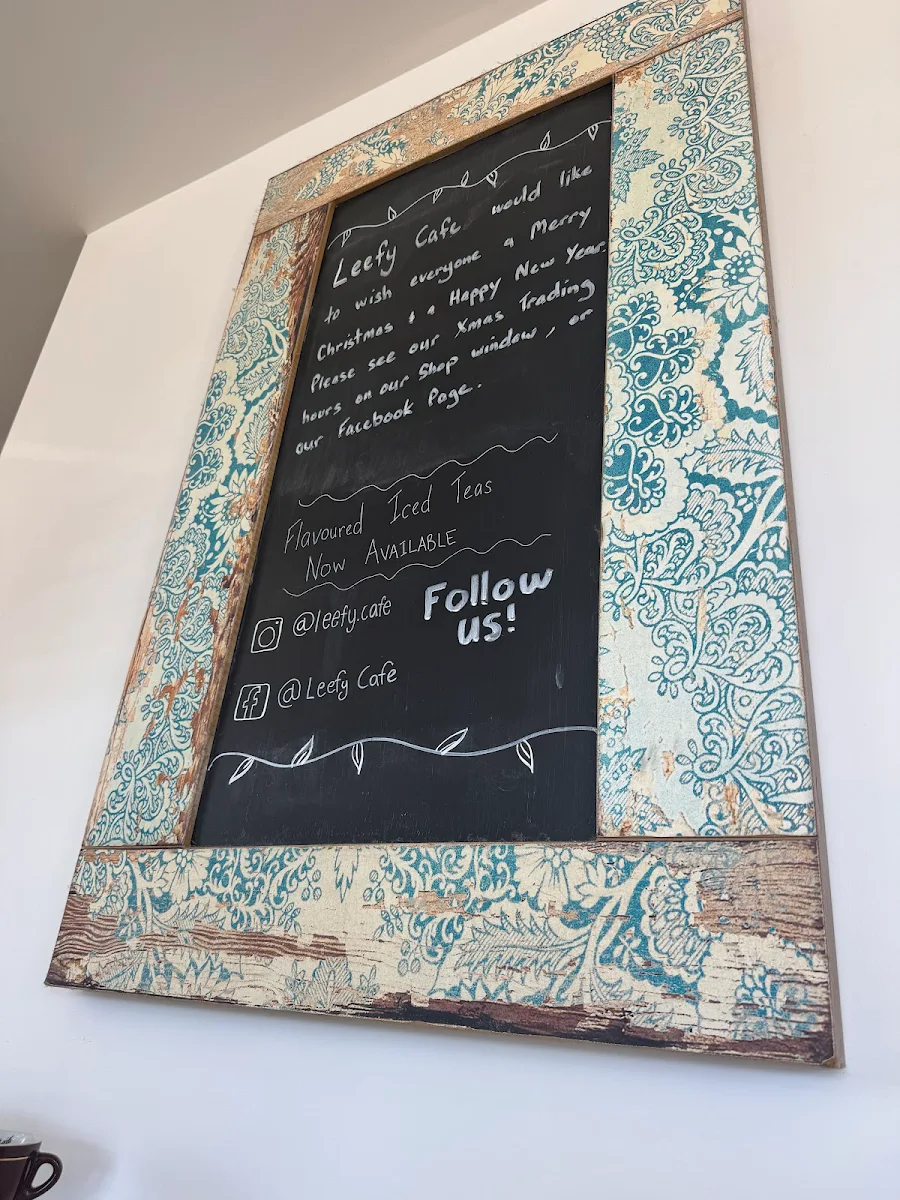 Leefy Cafe would like
to wish everyone a Merry
Christmas + a Happy New Year.
Please see our Xmas Trading
hours on our Shop window, or
our Facebook Page.
Flavoured Iced Teas
Now AVAILABLE
Follow
us!
@leefy.cafe
@ Leefy Cafe